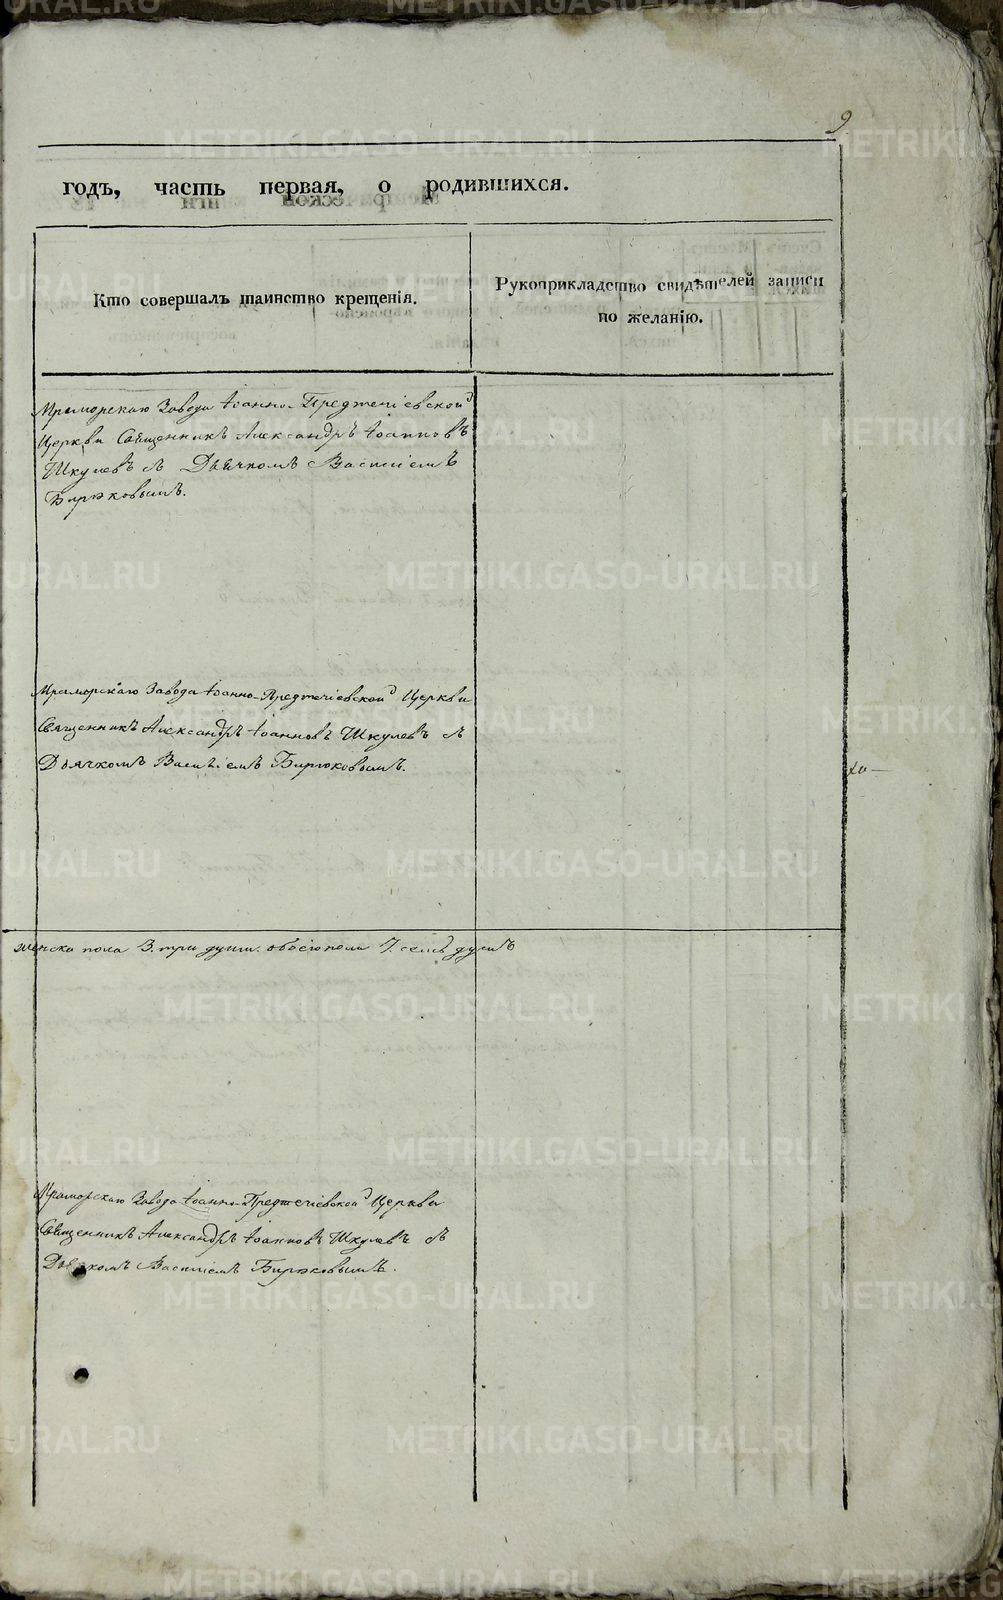 9
годъ, часть первая, о родившихся.
Кто совершалъ таинство крещенія.
Рукоприкладство свидѣтелей записи
по желанію.
Мраморскаго Завода Іоанно-Предтечіевской
Церкви Священникъ Александръ Іоанновъ
Шкулевъ съ Дьячкомъ Василіемъ
Бирюковымъ.
Мраморскаго Завода Іоанно-Предтечіевской Церкви
Священникъ Александръ Іоанновъ Шкулевъ съ
Дьячкомъ Василіемъ Бирюковымъ.
женска пола 3. три души. обоего пола 7. семь душъ
Мраморскаго Завода Іоанно-Предтечіевской Церкви
Священникъ Александръ Іоанновъ Шкулевъ съ
Дьячкомъ Василіемъ Бирюковымъ.
METRIKI.GASO-URAL.RU